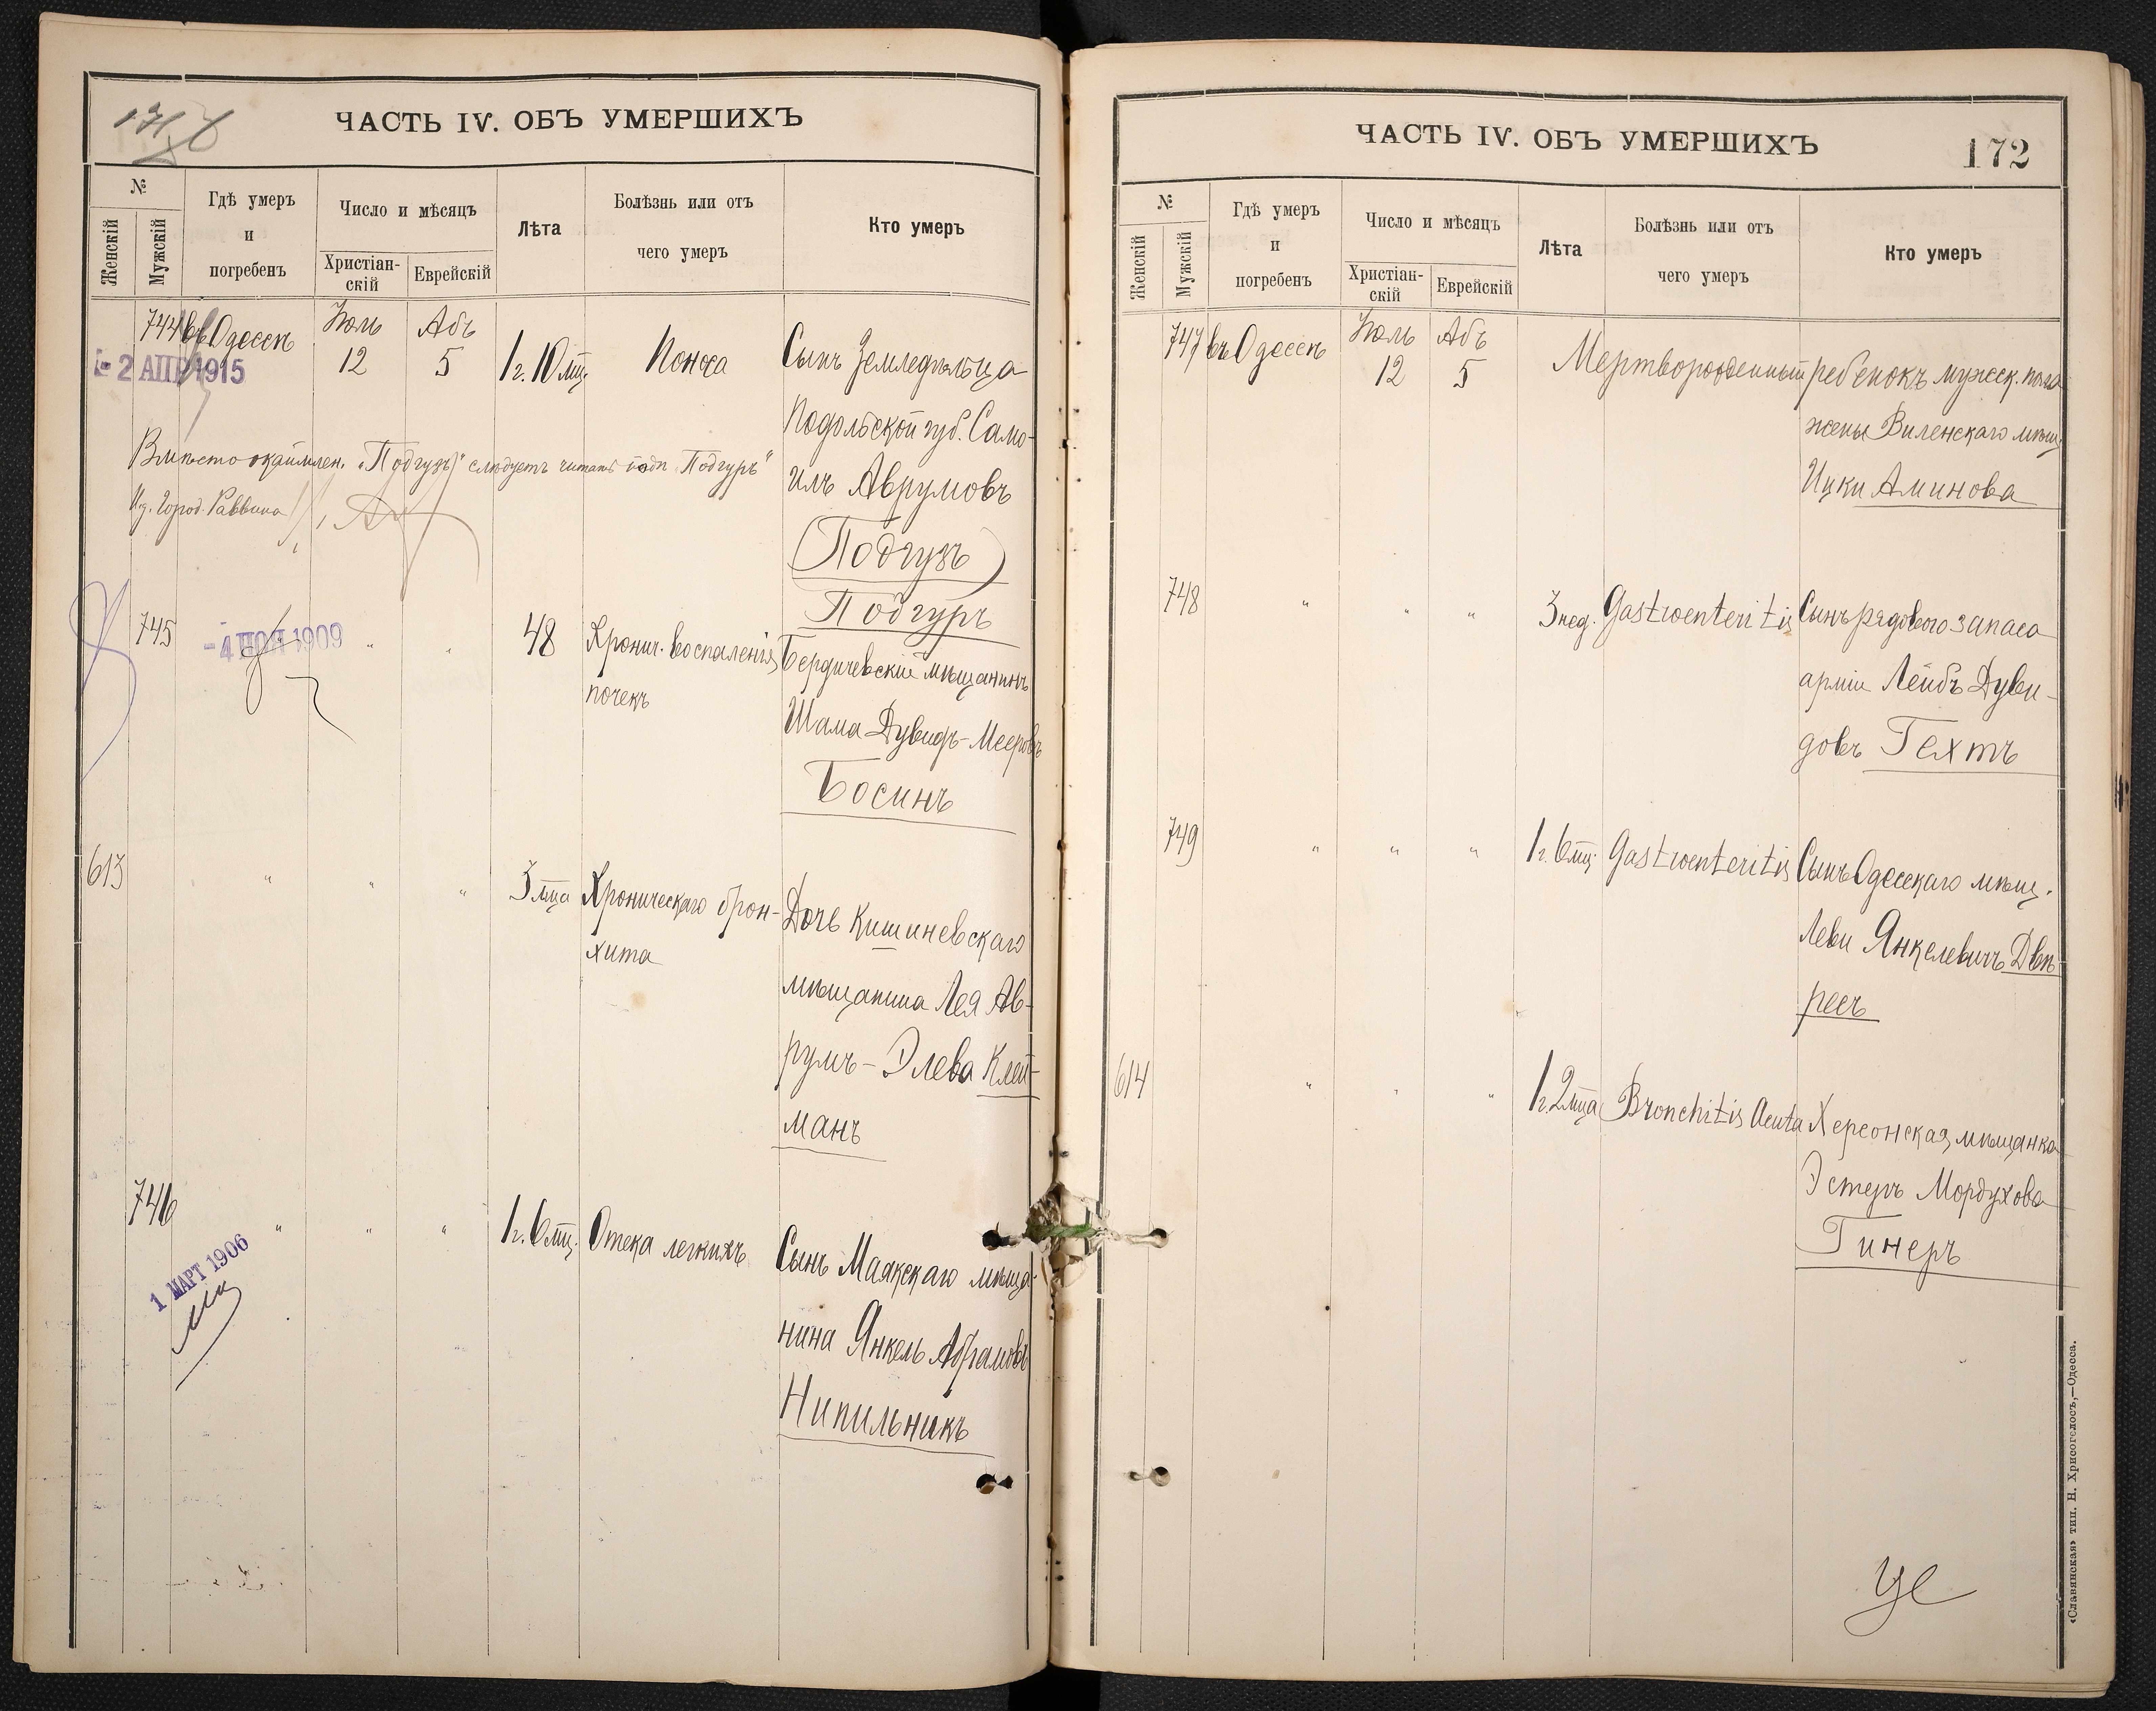 ЧАСТЬ IV. ОБЪ УМЕРШИХЪ
№
Женскій
Мужскій
Гдѣ умеръ
и
погребенъ
Число и мѣсяцъ
Христіан-
скій
Еврейскій
Лѣта
Болѣзнь или отъ
чего умеръ
Кто умеръ
744 въ Одессѣ Іюль 12 Абъ 5 1 г. 10 мц. Поноса Сынъ Земледѣльца
- 2 АПР 1915
Подольской губ. Само-
илъ Аврумовъ
(Подгузъ)
Подгуръ
Вмѣсто окаймлен. „Подгузъ" слѣдуетъ читать „Подгуръ"
Городск. Раввина
745 " " 48 Хронич. воспаленія Бердичевскій мѣщанинъ
- 4 1909
почекъ
Шама Дувидъ-Мееровъ
Босинъ
613 " " " 3 мца Хроническаго брон- Дочь Кишиневскаго
хита
мѣщанина Лея Ав-
румъ-Элева Клей-
манъ
746 " " " 1 г. 6 мц. Отека легкихъ Сынъ Маякскаго мѣща-
1 МАРТ 1906
нина Янкель Абрамовъ
Нипильникъ
ЧАСТЬ IV. ОБЪ УМЕРШИХЪ
172
№
Женскій
Мужскій
Гдѣ умеръ
и
погребенъ
Число и мѣсяцъ
Христіан-
скій
Еврейскій
Лѣта
Болѣзнь или отъ
чего умеръ
Кто умеръ
747 въ Одессѣ Іюль 12 Абъ 5 Мертворожденный ребенокъ мужск. пола
жены Виленскаго мѣщ.
Ицки Аминова
748 " " " 3 нед. Gastroenteritis Сынъ рядового запаса
арміи Лейбъ Дуви-
довъ Гехтъ
749 " " " 1 г. 6 мц. Gastroenteritis Сынъ Одесскаго мѣщ.
Леви Янкелевичъ Двѣ-
ресъ
614 " " " 1 г. 2 мца Bronchitis Acuta Херсонская мѣщанка
Эстеръ Мордухова
Гинеръ
«Славянская» тип. Н. Хрисогелосъ,—Одесса.